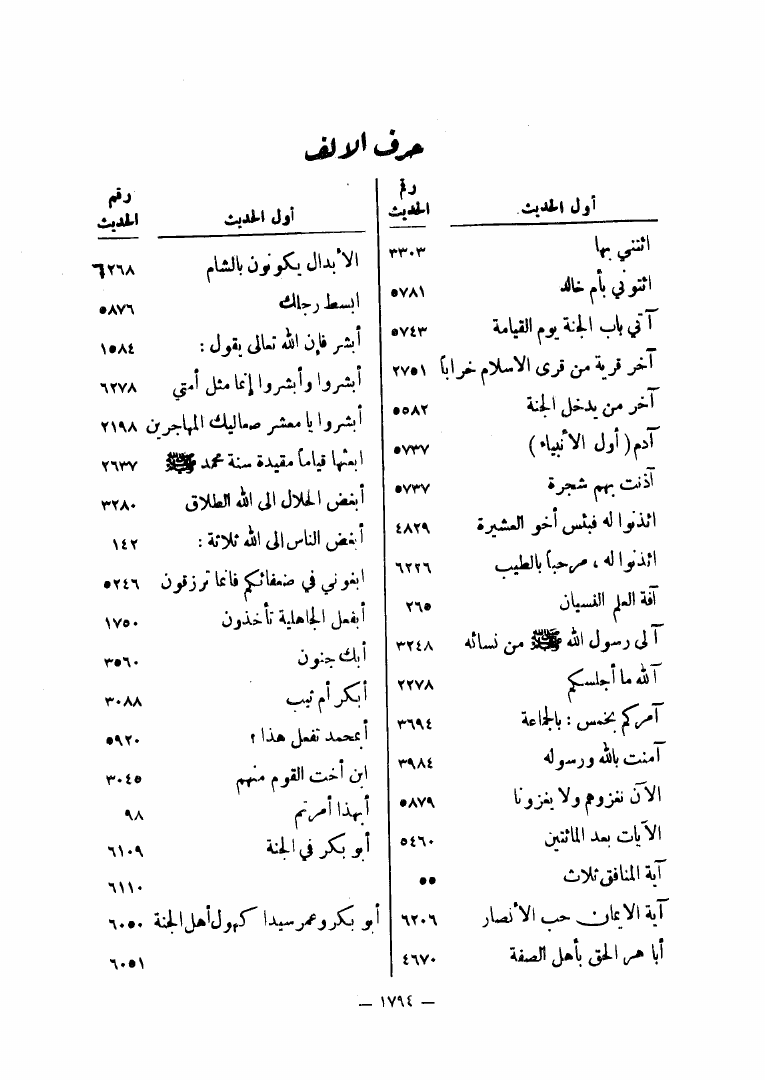 حرف الالف
أول الحديث. رقم الحديث
ائتني بها ٣٣٠٣
ائتوني بأم خالد ٥٧٨١
آتي باب الجنة يوم القيامة ٥٧٤٣
آخر قرية من قرى الاسلام خراباً ٢٧٥١
آخر من يدخل الجنة ٥٥٨٢
آدم ( أول الأنبياء ) ٥٧٣٧
آذنت بهم شجرة ٥٧٣٧
ائذنوا له فبئس أخو العشيرة ٤٨٢٩
ائذنوا له ، مرحباً بالطيب ٦٢٢٦
آفة العلم النسيان ٢٦٥
آلى رسول الله ﷺ من نسائه ٣٢٤٨
آلله ما أجلسكم ٢٢٧٨
آمركم بخمس : بالجماعة ٣٦٩٤
آمنت بالله ورسوله ٣٩٨٤
الآن نغزوهم ولا يغزونا ٥٨٧٩
الآيات بعد المائتين ٥٤٦٠
آية المنافق ثلاث ٥٥
آية الايمان حب الأنصار ٦٢٠٦
أبا هر الحق بأهل الصفة ٤٦٧٠
أول الحديث رقم الحديث
الأبدال يكونون بالشام ٦٢٦٨
ابسط رجلك ٥٨٧٦
أبشر فإن الله تعالى يقول : ١٥٨٤
أبشروا وأبشروا إنما مثل أمتي ٦٢٧٨
أبشروا يا معشر صعاليك المهاجرين ٢١٩٨
ابعثها قياماً مقيدة سنة محمد ﷺ ٢٦٣٧
أبغض الحلال الى الله الطلاق ٣٢٨٠
أبغض الناس الى الله ثلاثة : ١٤٢
ابغوني في ضعفائكم فانما ترزقون ٥٢٤٦
أبفعل الجاهلية تأخذون ١٧٥٠
أبك جنون ٣٥٦٠
أبكر أم ثيب ٣٠٨٨
أبمحمد تفعل هذا ؟ ٥٩٢٠
ابن أخت القوم منهم ٣٠٤٥
أبهذا أمرتم ٩٨
أبو بكر في الجنة ٦١٠٩
٦١١٠
أبو بكر وعمر سيدا كهول أهل الجنة ٦٠٥٠
٦٠٥١
— ١٧٩٤ —